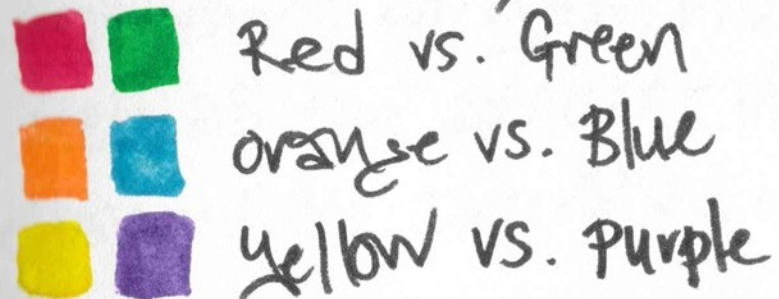 Red vs. Green
orange vs. Blue
yellow vs. purple